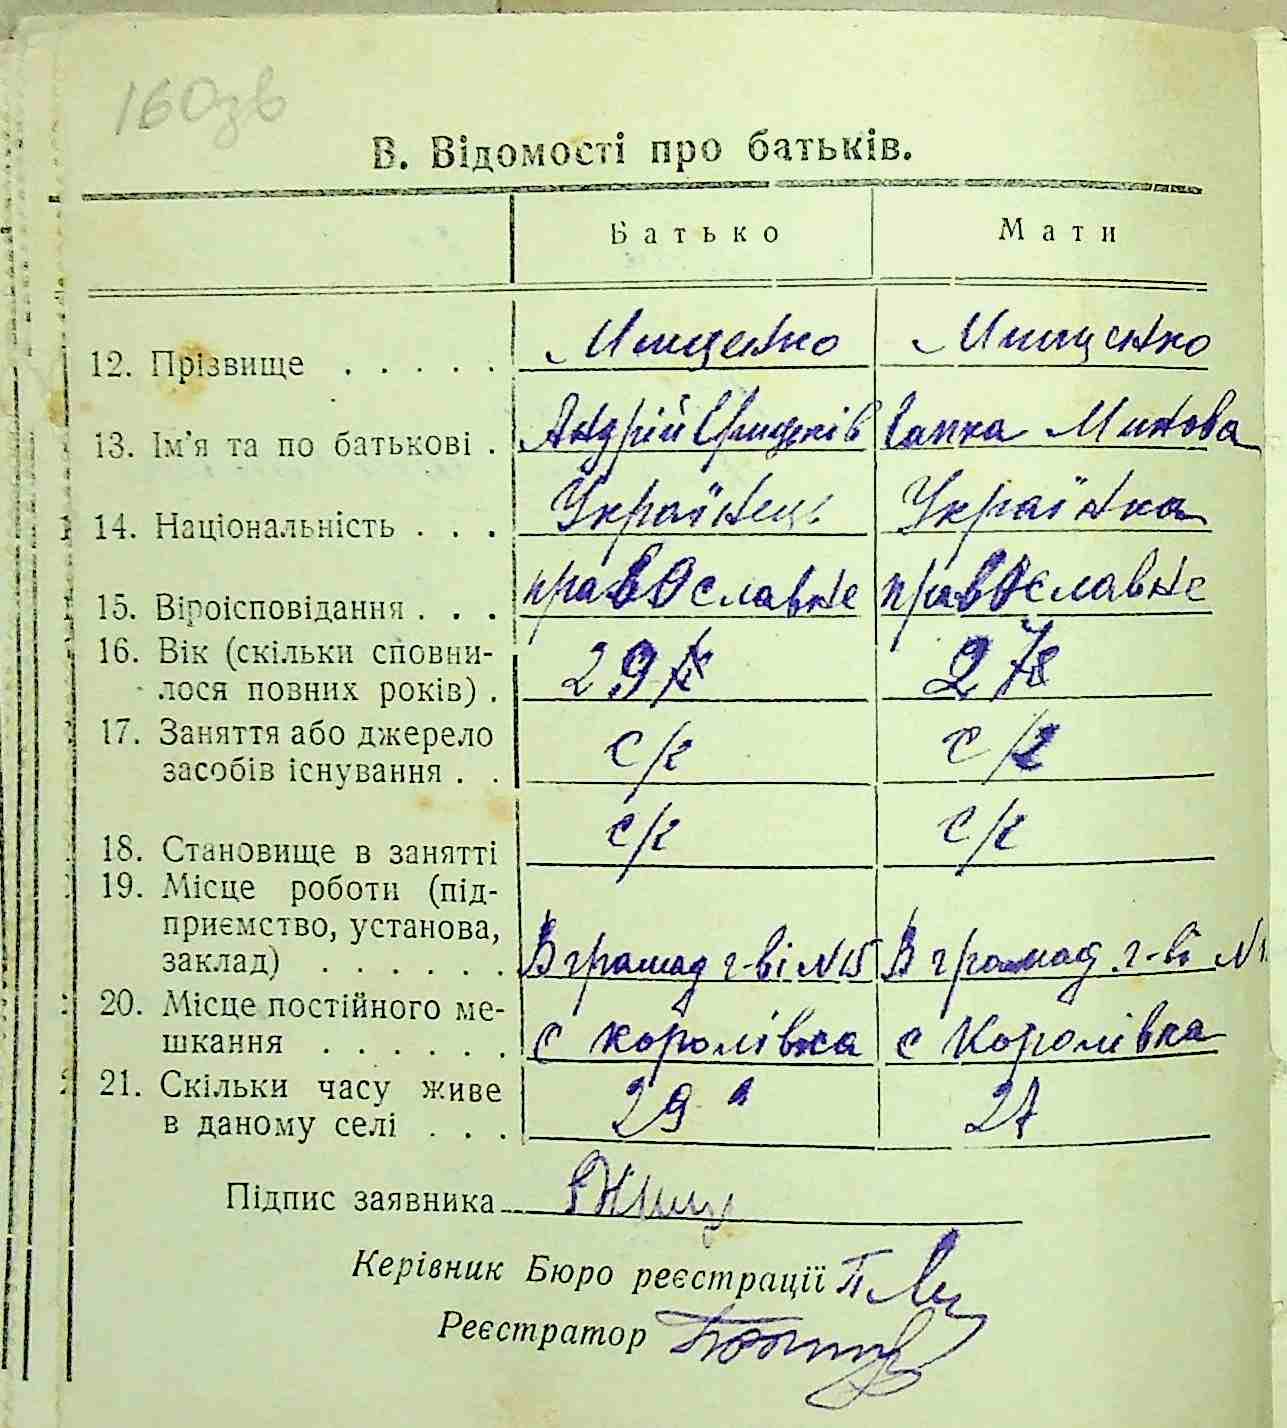 160зв
В. Відомості про батьків.
Батько Мати
12. Прізвище . . . . . Мищенко Мищенко
13. Ім'я та по батькові . Андрій Гапка Минова
14. Національність . . . Українець Українка
15. Віроісповідання . . . православне православне
16. Вік (скільки сповни-
лося повних років) . 29 27
17. Заняття або джерело
засобів існування . . с/г с/г
18. Становище в занятті с/г с/г
19. Місце роботи (під-
приємство, установа,
заклад) . . . . . . В громад г-ві №15 В громад. г-ві №
20. Місце постійного ме-
шкання . . . . . . с королівка с Королівка
21. Скільки часу живе
в даному селі . . . 29 27
Підпис заявника
Керівник Бюро реєстрації
Реєстратор